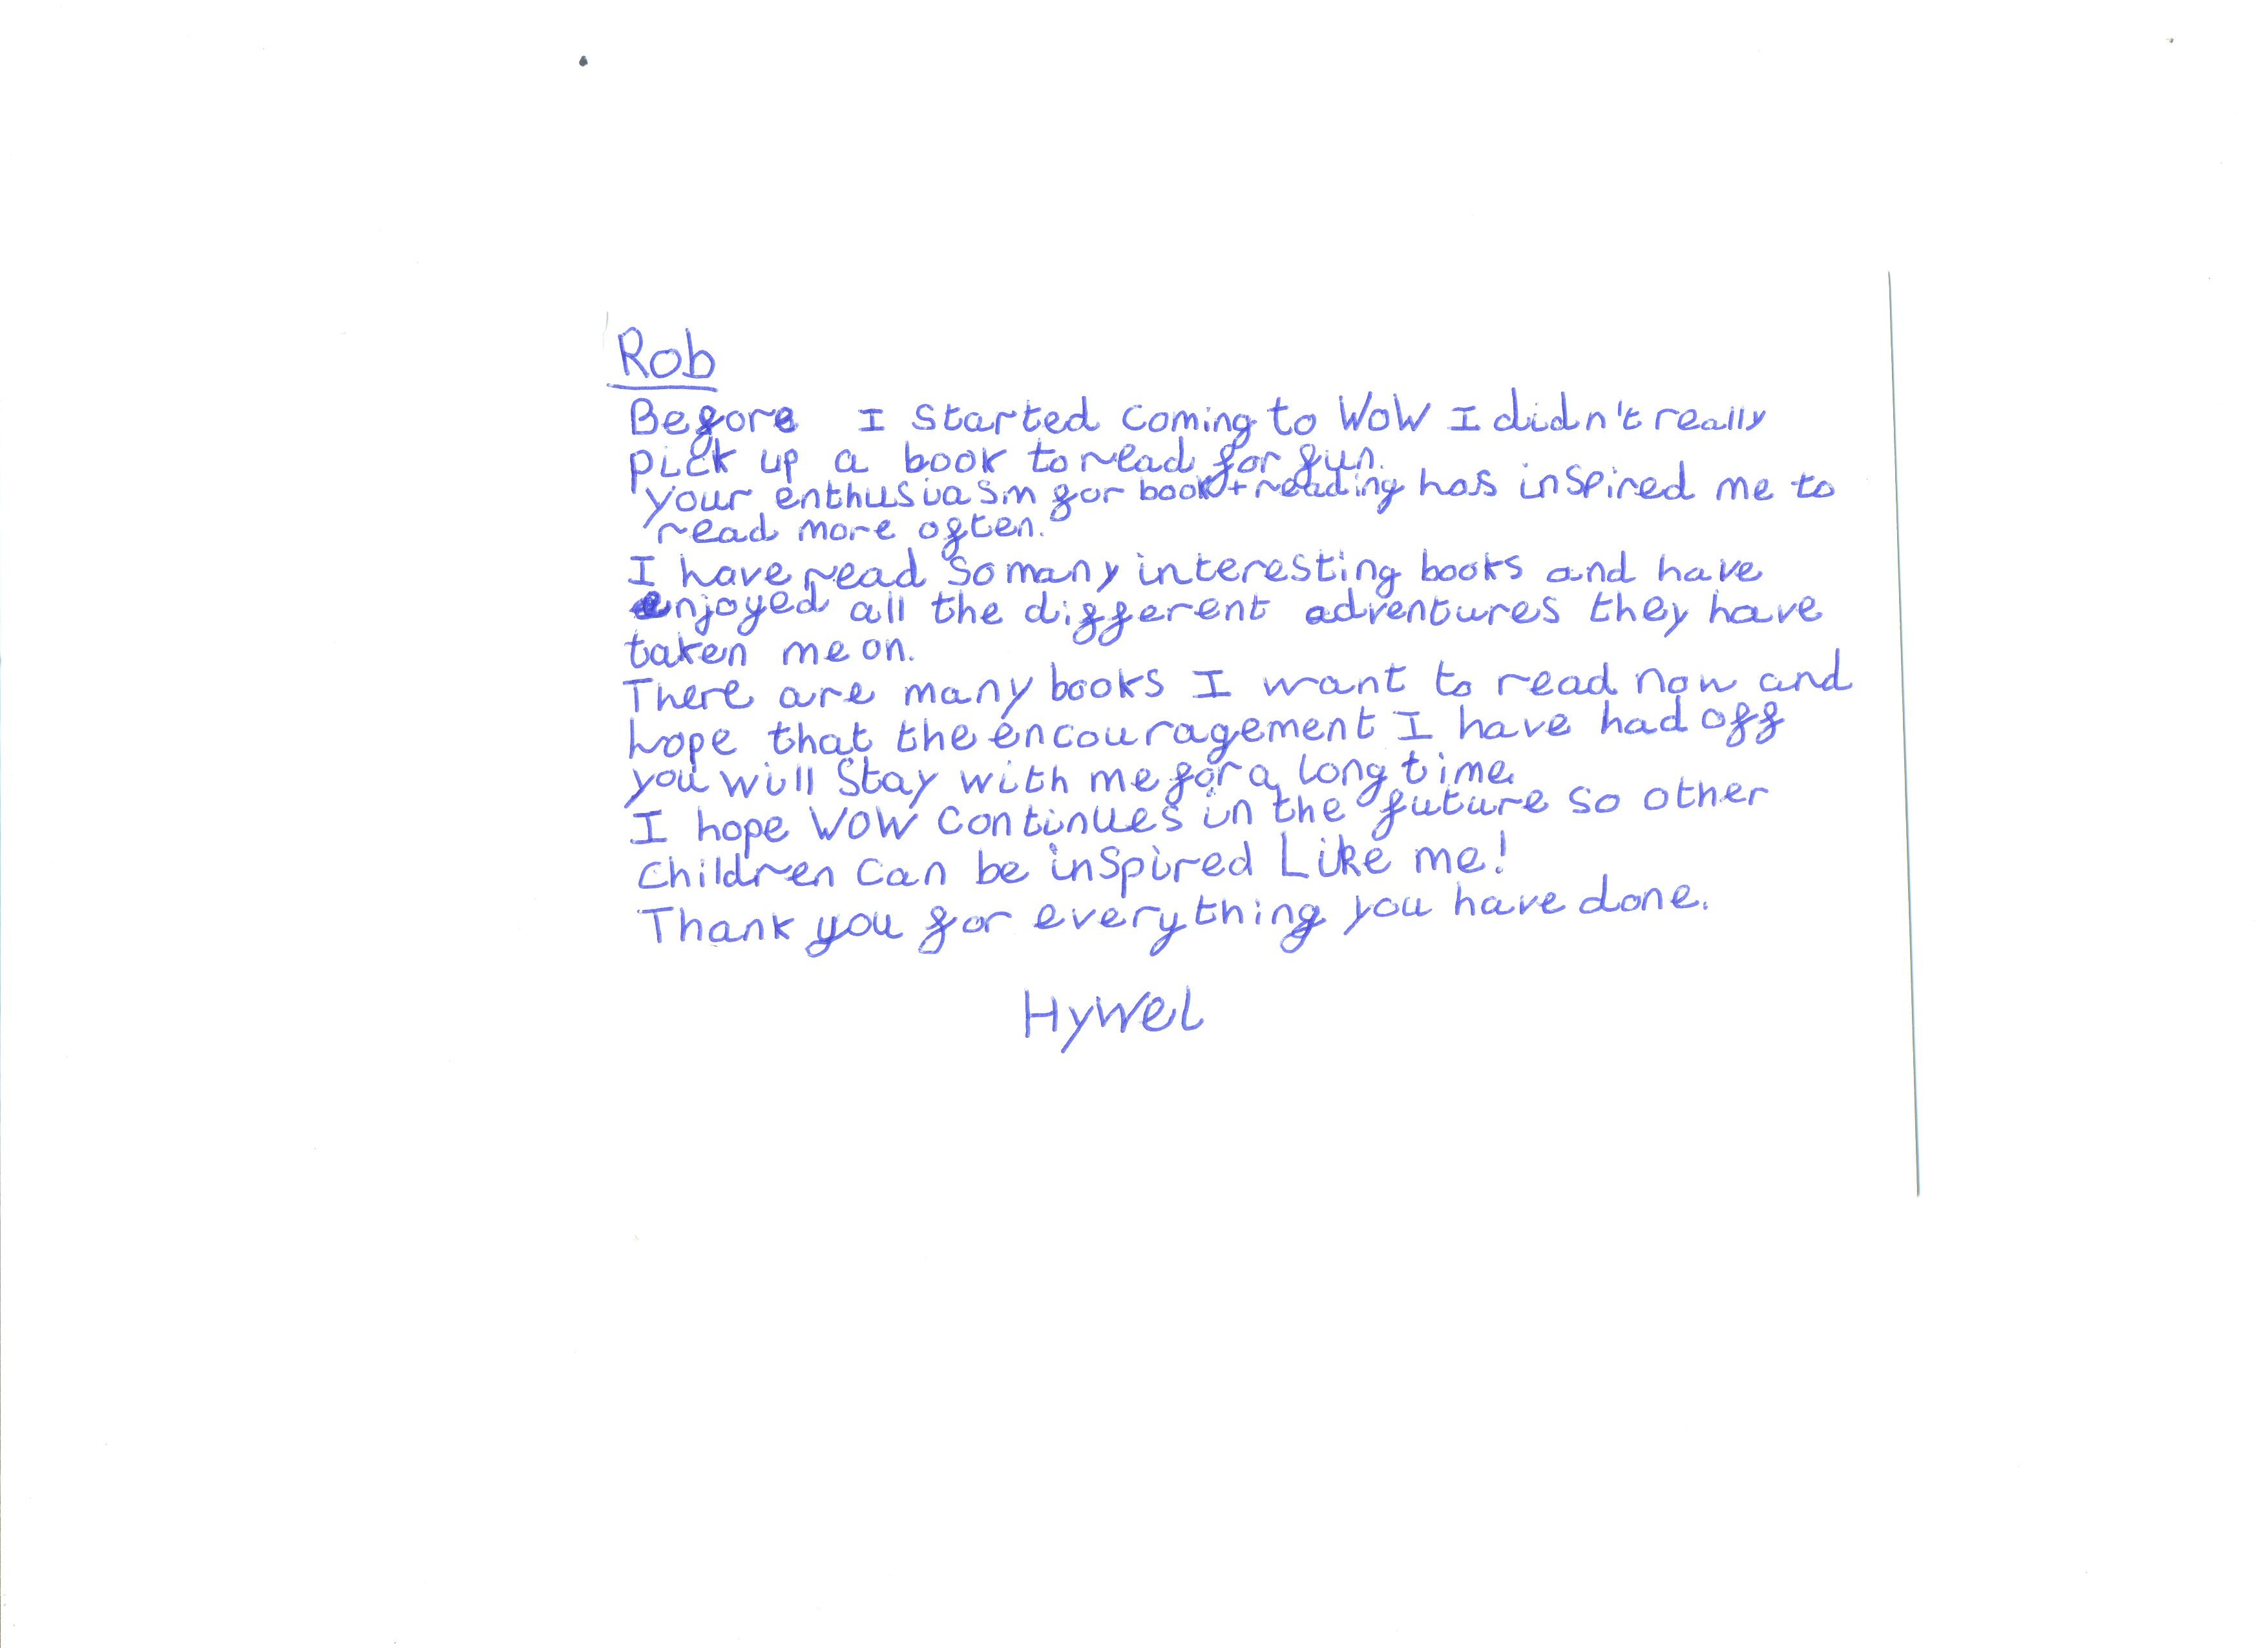 Rob
Before I started coming to WOW I didn't really
pick up a book to read for fun.
your enthusiasm for book + reading has inspired me to
read more often.
I have read so many interesting books and have
enjoyed all the different adventures they have
taken me on.
There are many books I want to read now and
hope that the encouragement I have had off
you will stay with me for a long time.
I hope WOW continues in the future so other
children can be inspired Like me!
Thank you for everything you have done.
Hywel